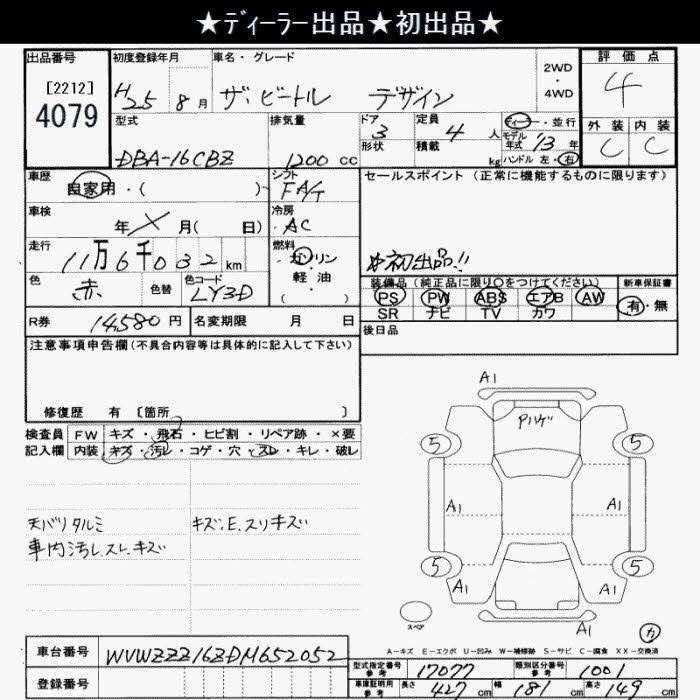 ★ディーラー出品★初出品★
出品番号 初度登録年月 車名・グレード 評価点
[2212] H25 8月 ザ・ビートル デザイン 2WD・4WD 4
4079
型式 排気量 ドア 3 定員 4人 ディーラー・並行
外装 内装
DBA-16CBZ 1200cc 形状 積載 kg モデル年式 '13年
ハンドル 左・右
C C
車歴 自家用・( ) シフト FA/T
セールスポイント(正常に機能するものに限ります)
車検 年 × 月( 日) 冷房 AC
走行 11万6千032km 燃料 ガソリン・軽油・( )
初出品!!
色 赤 色替 色コード LY3D
装備品(純正品に限り○をつけてください) 新車保証書
PS PW ABS エアB AW 有・無
SR ナビ TV カワ
R券 14,580円 名変期限 月 日
後日品
注意事項申告欄(不具合内容等は具体的に記入して下さい)
修復歴 有 [箇所 ]
検査員 FW キズ・飛石・ヒビ割・リペア跡・×要
記入欄 内装 キズ・汚レ・コゲ・穴・スレ・キレ・破レ
天バリタルミ キズ、E、スリキズ
車内汚レ、スレ、キズ
A1
Pハゲ
5 5
A1 A1
5 5
A1 A1
スペア
A1
カ
A-キズ E-エクボ U-凹み W-補修跡 S-サビ C-腐食 XX-交換済
車台番号 WVWZZZ16ZDM652052
型式指定番号 参考 17077 類別区分番号 参考 1001
登録番号
車庫証明用 参考 長さ 427cm 幅 181cm 高さ 149cm